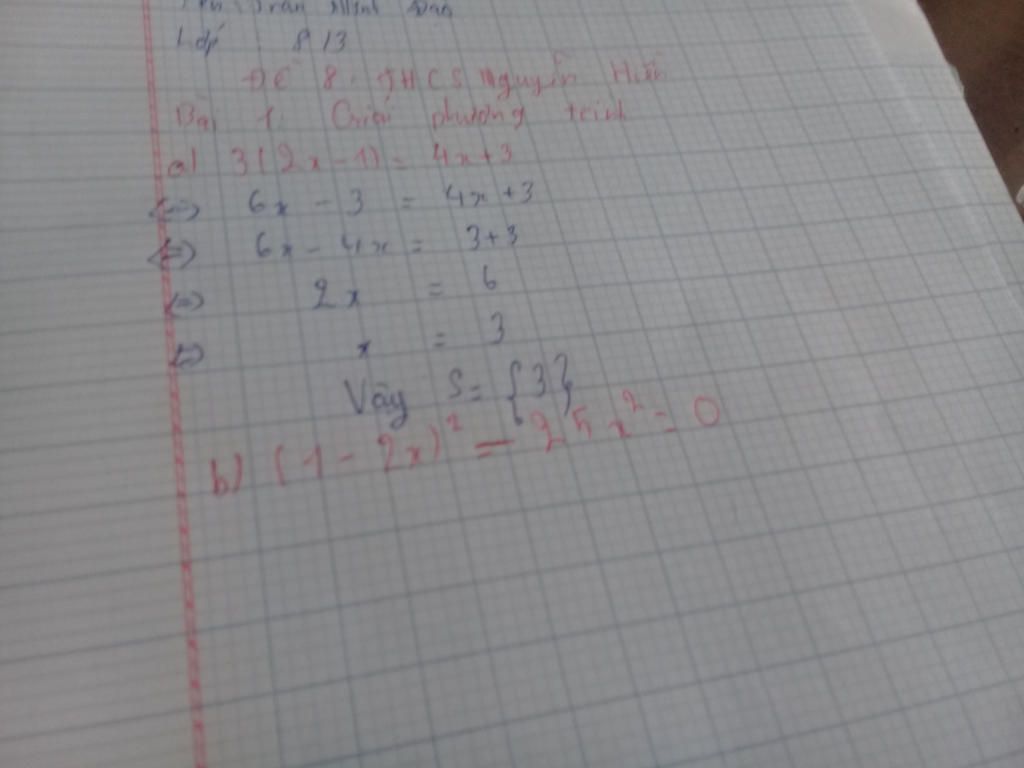 Trần Minh
Lớp 8/13
ĐỀ 8. THCS Nguyễn
Bài 1: Giải phương trình
a) 3(2x-1) = 4x+3
<=> 6x - 3 = 4x+3
<=> 6x - 4x = 3+3
<=> 2x = 6
<=> x = 3
Vậy S= {3}
b) (1 - 2x)² - 25x² = 0